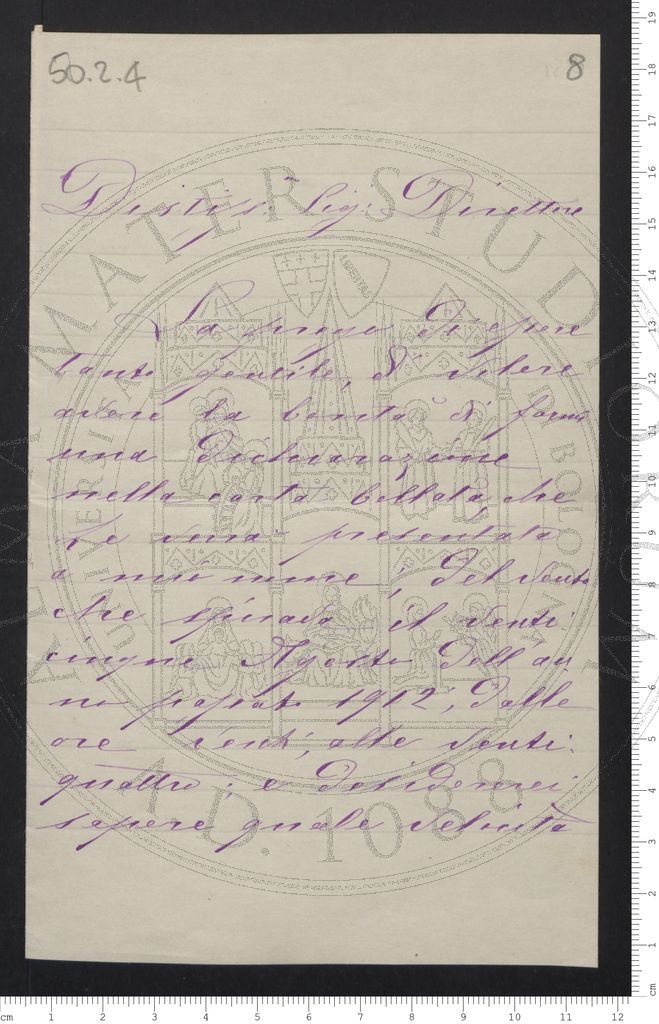 50.2.4
8
Distiss. Sig: Direttore
La prego di essere
tanto gentile, di volere
avere la bontà di farmi
una dichiarazione
nella carta bollata che
Le verrà presentata
a mio nome; del vento
che spirava il venti:
cinque Agosto dell'an
no passato 1912, dalle
ore venti, alle venti:
quattro; e desidererei
sapere quale velocità
ALMA MATER STUDIORUM
UNIVERSITAS BONONIENSIS
LIBERTAS
A.D. 1088